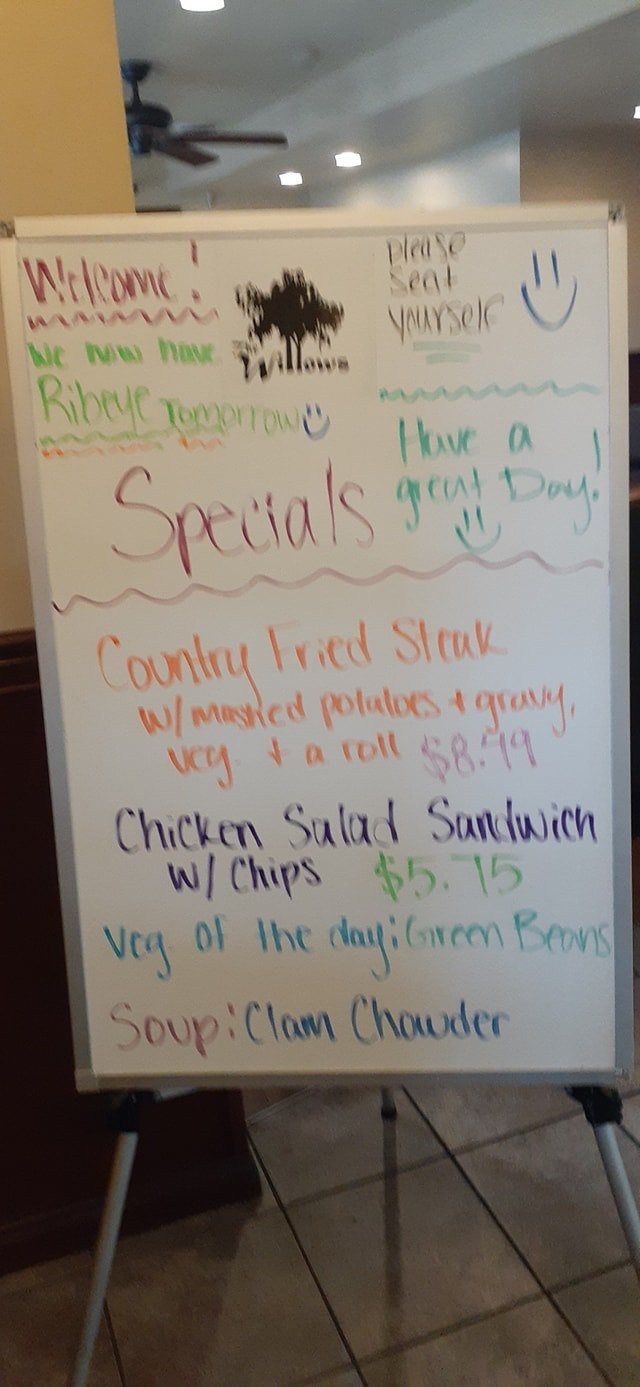 Welcome!
We now have
Ribeye Tomorrow
Willows
please
Seat
yourself
Have a
great Day!
Specials
Country Fried Steak
w/mashed potatoes + gravy,
veg + a roll $8.49
Chicken Salad Sandwich
w/ Chips $5.75
Veg of the day: Green Beans
Soup: Clam Chowder